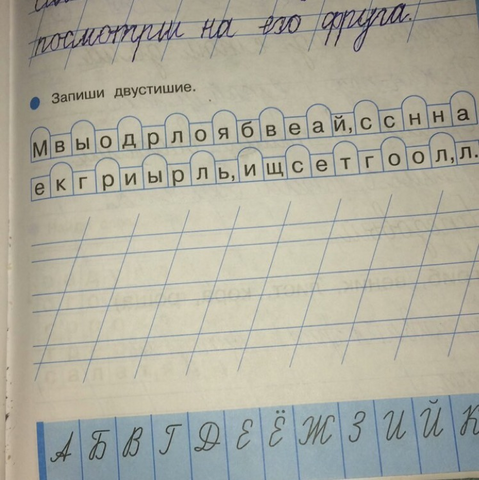 посмотри на его друга.
Запиши двустишие.
Мвыодрлоябвеай,сснна
екгриырль,ищсетгоол,л.
А Б В Г Д Е Ё Ж З И Й К